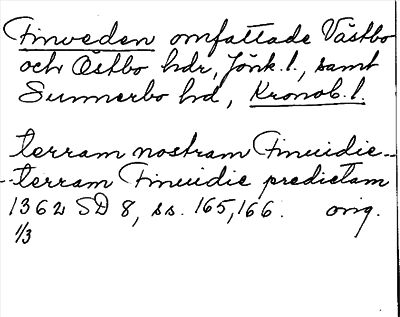 Finveden omfattade Västbo
och Östbo hdr, Jönk. l., samt
Sunnerbo hd, Kronob. l.
terram nostram Finuidie --
-- terram Finuidie predictam
1362 SD 8, ss. 165, 166. orig.
1/3